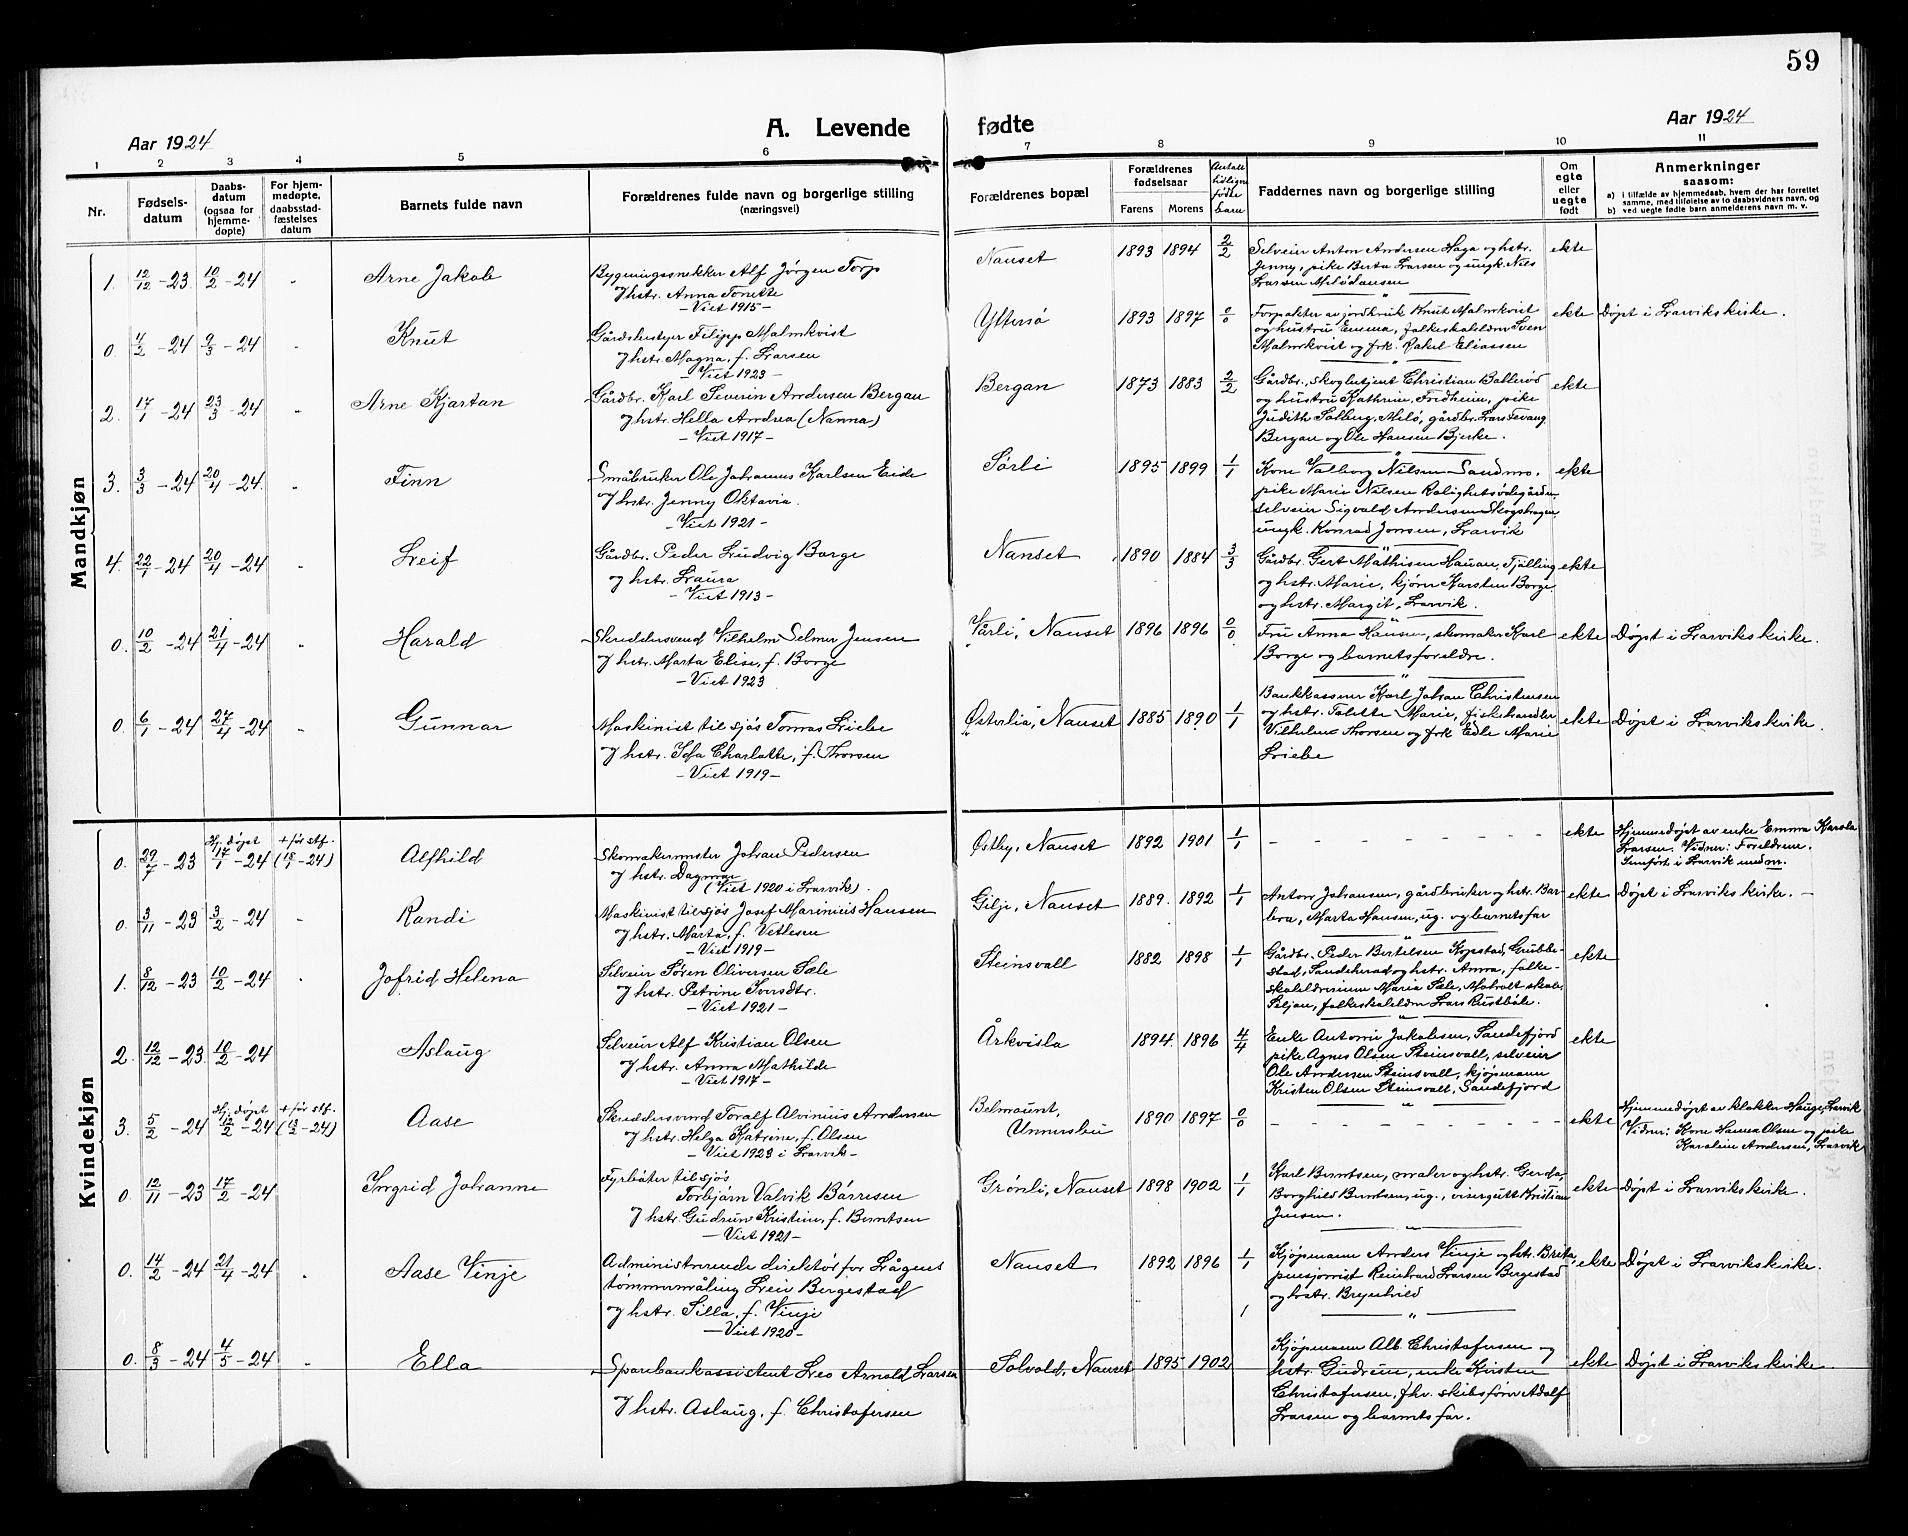 59
Aar 1924
A. Levende fødte
Aar 1924
1 2 3 4 5 6 7 8 9 10 11
Nr.
Fødsels-
datum
Daabs-
datum
(ogsaa for
hjemme-
døpte)
For hjem-
medøpte,
daabsstad-
fæstelses
datum
Barnets fulde navn
Forældrenes fulde navn og borgerlige stilling
(næringsvei)
Forældrenes bopæl
Forældrenes
fødselsaar
Farens Morens
Antall
tidligere
fødte
barn
Faddernes navn og borgerlige stilling
Om
egte
eller
uegte
født
Anmerkninger
saasom:
a) i tilfælde av hjemmedaab, hvem der har forrettet
samme, med tilføielse av to daabsvidners navn, og
b) ved uegte fødte barn anmelderens navn m. v.
Mandkjøn
1. 12/12 -23 10/2 -24 Arne Jakob
Bygningssnekker Alf Jørgen Torp
og hstr. Anna Tonette
- Viet 1915 -
Nanset 1893 1894 2/2
Selveier Anton Andersen Haga og hstr.
Jenny, pike Berta Larsen og ungk. Nils
Larsen
ekte
0. 4/2 -24 9/3 -24 Knut
Gårdsbestyer Filipp Malmkvist
og hstr. Magna, f. Larsen
- Viet 1923 -
Yttersø 1893 1897 0/0
Forpakter av jordbruk Knut Malmkvist
og hustru Emma, folkeskoleldrer Sven
Malmkvist og frk. Rakel Eliassen
ekte Døpt i Larvikskirke.
2. 17/1 -24 23/3 -24 Arne Kjartan
Gårdbr. Karl Severin Andersen Bergan
og hstr. Hella Andrea (Nanna)
- Viet 1917 -
Bergan 1873 1883 2/2
Gårdbr., skogbetjent Christian Bollerød
og hustru Kathrine, Fridheim, pike
Judith Solberg, Melø, gårdbr. Lars Fevang
Bergan og Ole Hansen Bjerke.
ekte
3. 3/3 -24 20/4 -24 Finn
Småbruker Ole Johannes Karlsen Eide
og hstr. Jenny Oktavia.
- Viet 1921 -
Sørli 1895 1899 1/1
Kone Valborg Nilsen Sandmo.
pike Marie Nilsen
selveier Sigvald Andersen Skogshagen
ungk. Konrad Jonsen, Larvik
ekte
4. 22/1 -24 20/4 -24 Leif
Gårdbr. Peder Ludvig Borge
og hstr. Laura
- Viet 1913 -
Nanset 1890 1884 3/3
Gårdbr. Gert Mathisen Hauan, Tjølling
og hstr. Marie, kjører Karsten Borge
og hstr. Margit, Larvik.
ekte
0. 10/2 -24 21/4 -24 Harald
Skreddersvend Vilhelm Selmer Jensen
og hstr. Marta Elise, f. Borge
- Viet 1923
"Vårli", Nanset 1896 1896 0/0
Fru Anna Hansen, skomaker Karl
Borge og barnets foreldre.
ekte Døpt i Larvikskirke.
0. 6/1 -24 27/4 -24 Gunnar
Maskinist til sjøs Tomas Liebe
og hstr. Ida Charlotte, f. Thorsen
- Viet 1919 -
"Østerlia", Nanset 1885 1890 1/1
Bankkasserer Karl Johan Christensen
og hstr. Talette Marie, fiskehandler
Vilhelm Thorsen og frk Edle Marie
Liebe
ekte Døpt i Larvikskirke.
Kvindekjøn
0. 29/7 -23 Hj. døpt 17/1 -24 + før stf. (18/1 -24) Alfhild
Skomakermester Johan Pedersen
og hstr. Dagmar
(Viet 1920 i Larvik).
Østby, Nanset 1892 1901 1/1
- - - - - - - - -
ekte Hjemmedøpt av enke Emma Karola
Larsen. Vidner: Foreldrene.
Innført i Larvik medm.
0. 3/11 -23 3/2 -24 Randi
Maskinist til sjøs Josef Marinius Hansen
og hstr. Marta, f. Vetlesen
- Viet 1919 -
Gilje, Nanset 1889. 1892 1/1
Anton Johansen, gårdbruker og hstr. Bar-
bera, Marta Hansen, ug. og barnets far
ekte Døpt i Larviks kirke. -
1. 8/12 -23 10/2 -24 Jofrid Helena
Selveier Søren Oliversen Sæle
og hstr. Petrine Iversdtr.
- Viet 1921 -
Steinsvall 1882 1898 1/1
Gårdbr. Peder Bertelsen Kopstad, Grubbe-
stad, Sandeherad og hstr. Anna, folke-
skoleldrerinne Maria Sele, Moholt skole,
Siljan, folkeskoleldrer Lars Rustbøle.
ekte
2. 12/12 -23 10/2 -24 Aslaug
Selveier Alf Kristian Olsen
og hstr. Anna Mathilde
- Viet 1917 -
Årkvisla 1894. 1896 4/4
Enke Antonie Jakobsen, Sandefjord
pike Agnes Olsen Steinsvall, selveier
Ole Andersen Steinsvall, kjøpmann
Kristen Olsen Steinsvall, Sandefjord
ekte
3. 5/2 -24 Hj. døpt 12/2 -24 + før stf. (13/2 -24) Aase
Skreddersvend Toralf Alvinius Andersen
og hstr. Helga Katrine, f. Olsen
- Viet 1923 i Larvik -
Belmount,
Unnersbu 1890 1897 0/0
- - - - - - - - -
ekte Hjemmedøpt av klokker Hauge, Larvik
Vidner: Kone Hanna Olsen og pike
Karoline Andersen, Larvik
0. 12/11 -23 17/2 -24 Ingrid Johanne
Fyrbøter til sjøs
Torbjørn Valvik Børresen
og hstr. Gudrun Kristine, f. Berntsen
- Viet 1921 -
Grønli, Nanset 1898 1902 1/1
Karl Berntsen, maler og hstr. Gerda,
Borghild Berntsen, ug., visergutt Kristian
Jensen.
ekte Døpt i Larvikskirke.
0. 14/2 -24 21/4 -24 Aase Vinje
Administrerende direktør for Lågens
tømmermåling Leiv Bergestad
og hstr. Silla, f. Vinje
- Viet 1920 -
Nanset 1892 1896 1/1
Kjøpmann Anders Vinje og hstr. Brita,
pensjonist Reinhard Larsen Bergestad
og hstr. Brynhild
ekte Døpt i Larvikskirke.
0. 8/3 -24 4/5 -24 Ella
Sparebankassistent Leo Arnold Larsen
og hstr. Aslaug, f. Christofersen
Solvold, Nanset 1895 1902
Kjøpmann Alb. Christofersen og
hstr. Gudrun, enke Kirsten
Christofersen, fhv. skibsfører Adolf
Larsen og barnets far.
ekte Døpt i Larvikskirke.